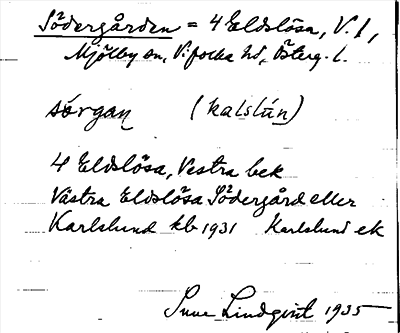 Södergården = 4 Eldslösa, V. f,
Mjölby sn, Vifolka hd, Österg. l.
sǿrgan (kalslún)
4 Eldslösa, Vestra bek
Västra Eldslösa Södergård eller
Karlslund kb 1931 Karlslund ek
Sune Lindqvist 1935